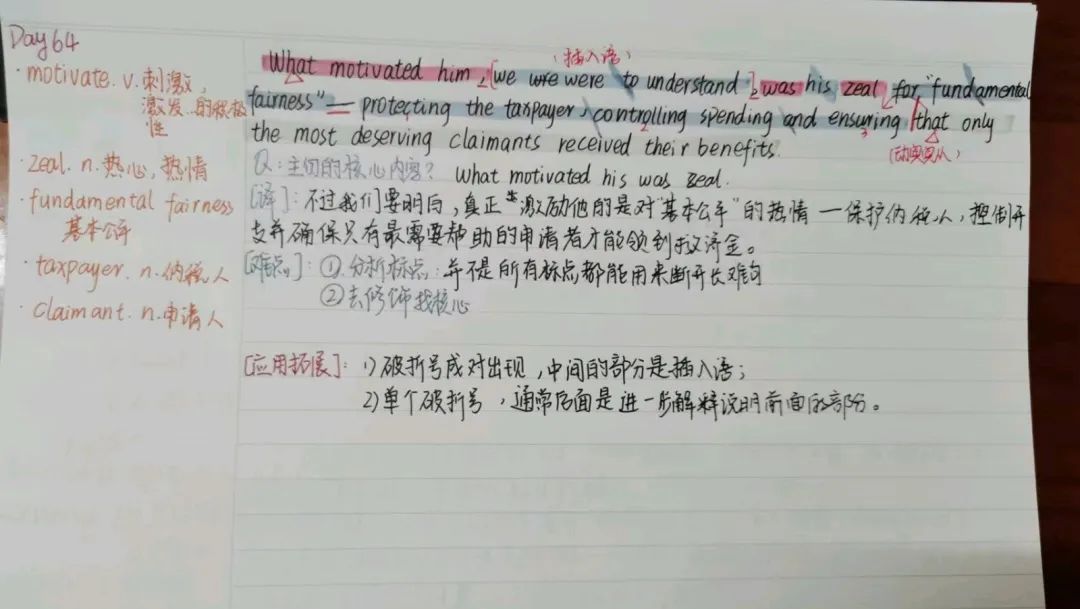 Day 64
· motivate. v. 刺激,
激发..的积极
性
· zeal. n. 热心, 热情
· fundamental fairness
基本公平
· taxpayer. n. 纳税人
· claimant. n. 申请人
(插入语)
What motivated him , [we were were to understand ], was his zeal for "fundamental
fairness" — protecting the taxpayer, controlling spending and ensuring that only
(动宾宾从)
the most deserving claimants received their benefits.
Q: 主句的核心内容? What motivated his was zeal.
[译]: 不过我们要明白, 真正 激励他的是对"基本公平"的热情 — 保护纳税人, 控制开
支并确保只有最需要帮助的申请者才能领到救济金。
[难点]: ① 分析标点: 并不是所有标点都能用来断开长难句
② 去修饰找核心
[应用拓展]: 1) 破折号成对出现, 中间的部分是插入语;
2) 单个破折号, 通常后面是进一步解释说明前面的部分。